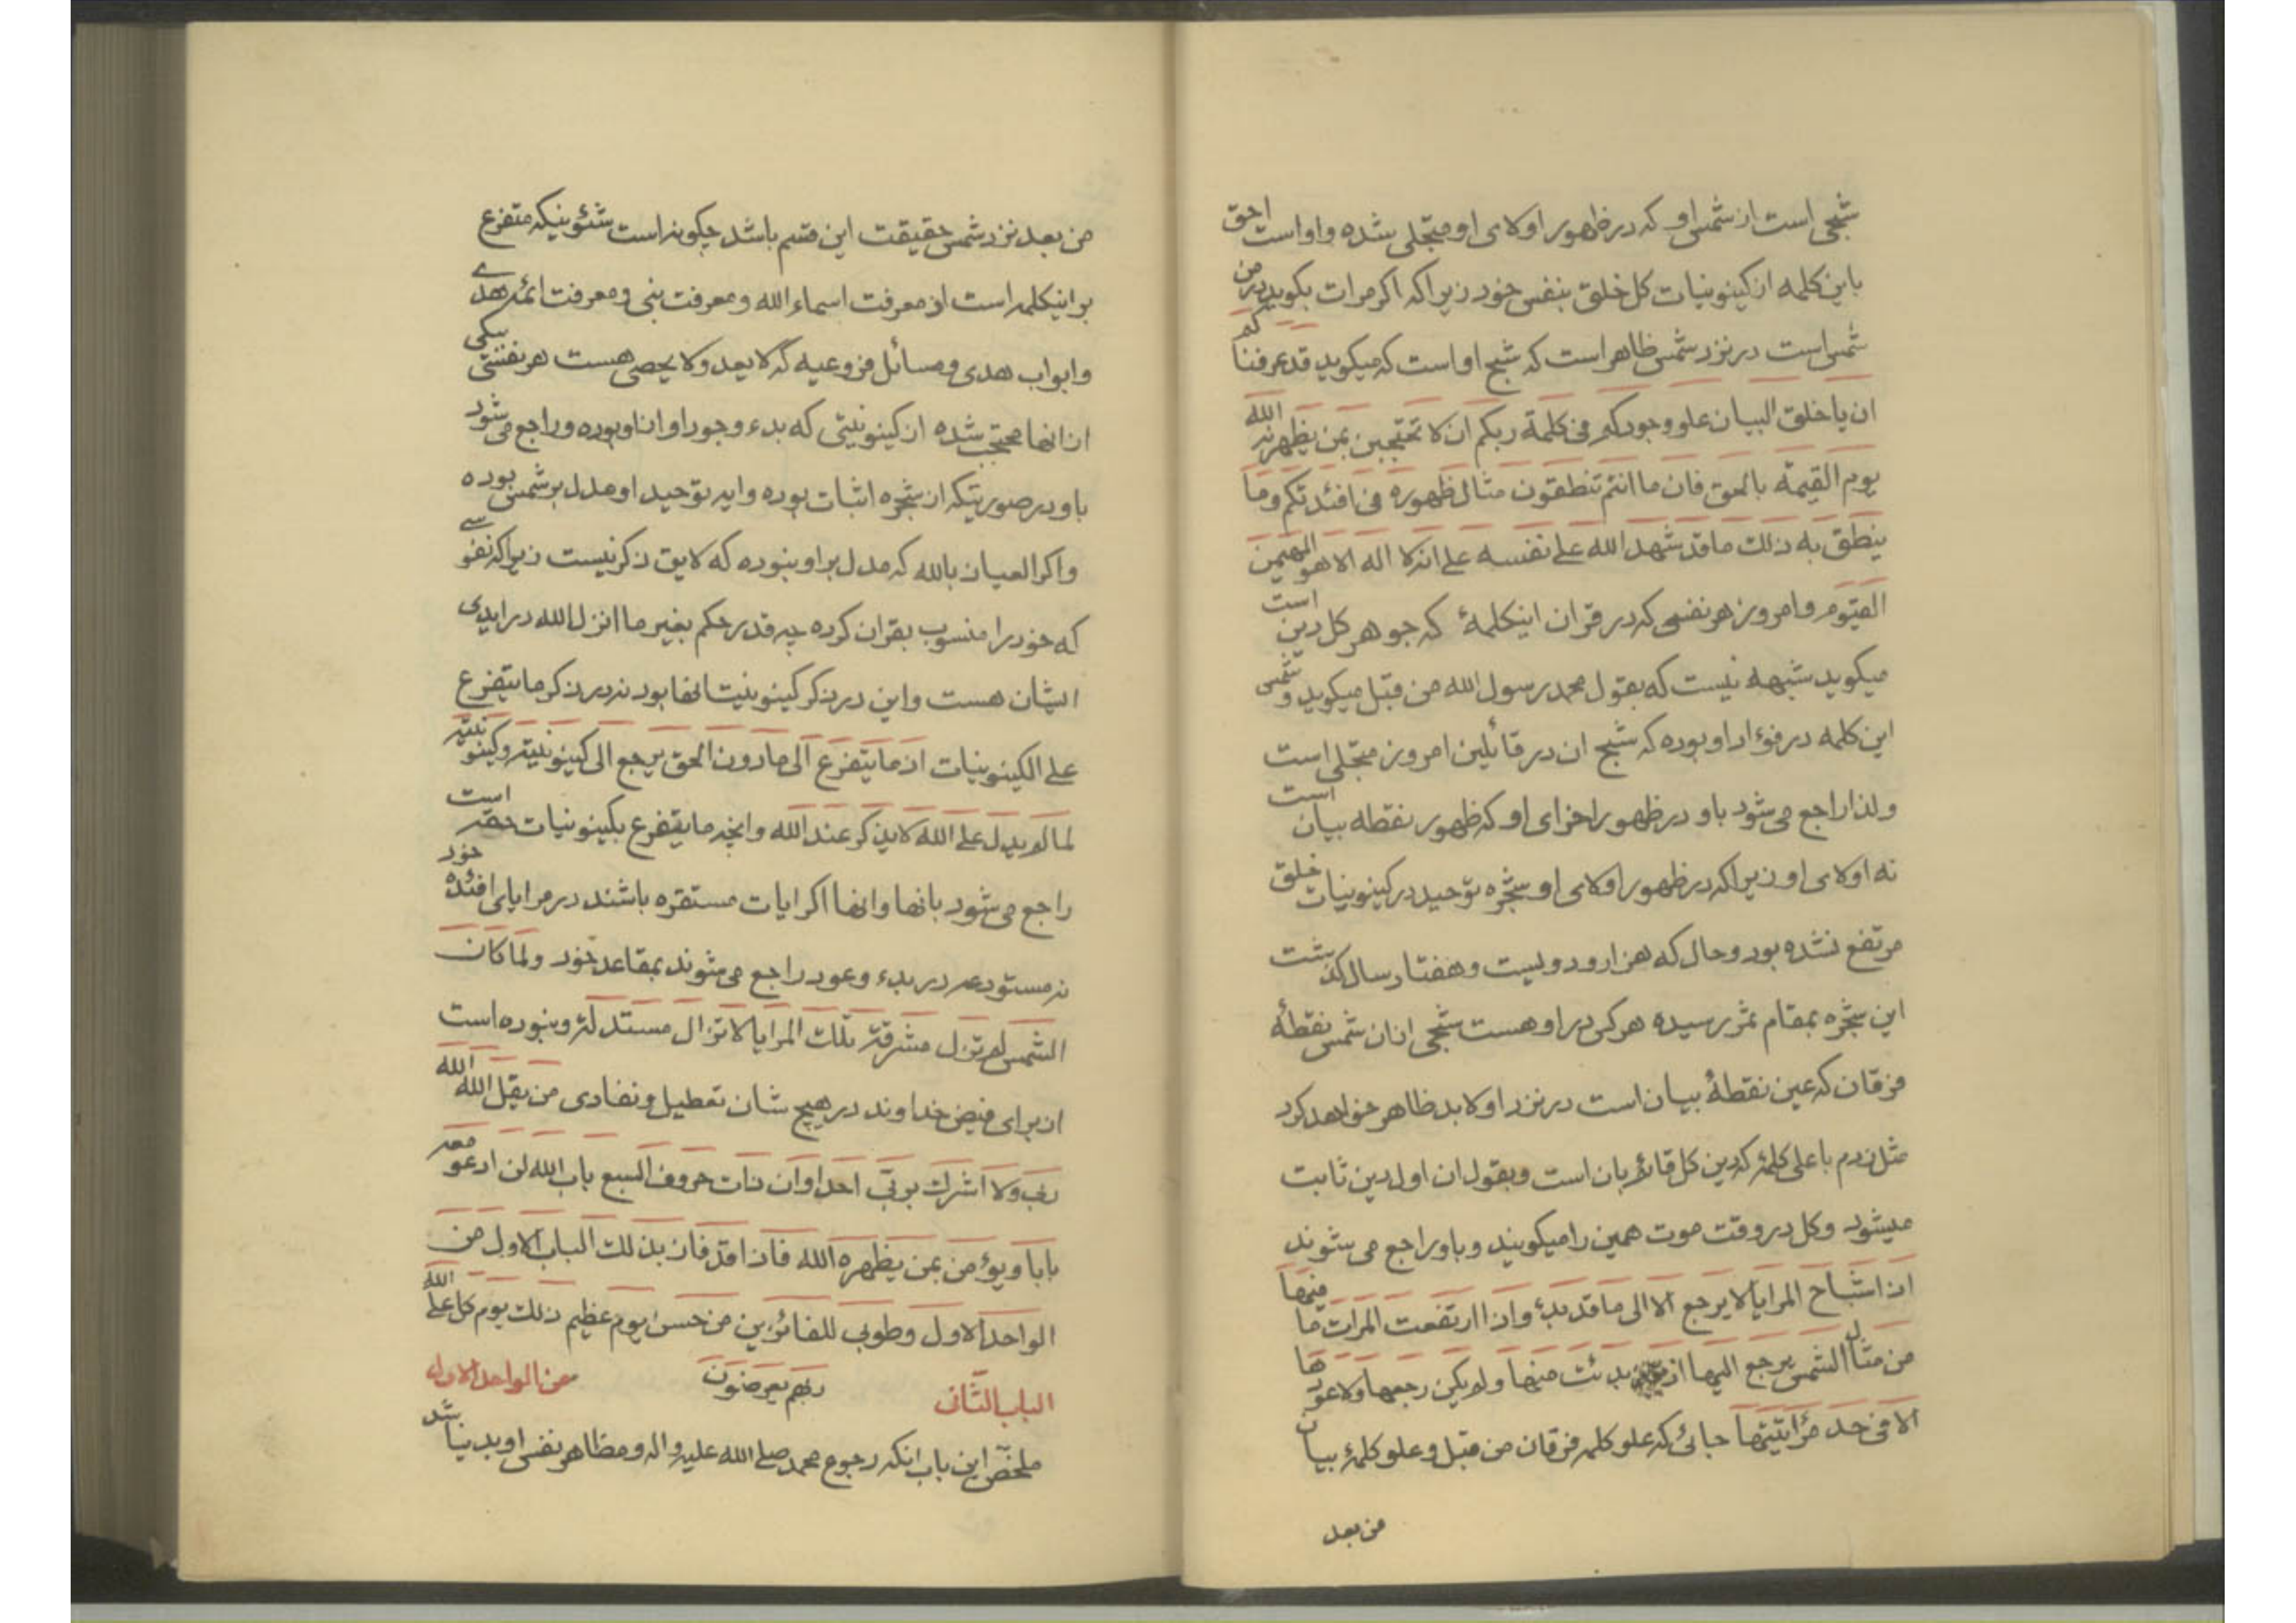 شبحی است از شمس او که در ظهور اولای او متجلی شده و او است احق
باین کلمه از کینونیات کل خلق بنفس خود زیرا که اکر مرات بکوید در من
شمس است در نزد شمس ظاهر است که شبح او است که میکوید قد عرفناکم
ان یا خلق البیان علو وجودکم فی کلمة ربکم ان لا تحتجبن بمن یظهره الله
یوم القیمة بالحق فان ما انتم تنطقون مثال ظهوره فی افئدتکم وما
ینطق به ذلک ما قد شهد الله علی نفسه علی انه لا اله الا هو المهیمن
القیوم و امروز هر نفسی که در قران اینکلمهٔ که جوهر کل دین است
میکوید شبهه نیست که بقول محمد رسول الله من قبل میکوید و شمس
این کلمه در فؤاد او بوده که شبح ان در قائلین امروز متجلی است
ولذا راجع می شود باو در ظهور اخرای او که ظهور نقطه بیان است
نه اولای او زیرا که در ظهور اولای او شجره توحید در کینونیات خلق
مرتفع نشده بود و حال که هزار و دویست و هفتاد سال کذشت
این شجره بمقام ثمر رسیده هرکه در او هست شبحی از ان شمس نقطهٔ
فرقان که عین نقطهٔ بیان است در نزد او لابد ظاهر خواهد کرد
مثل زدم باعلی کلمهٔ که دین کل قائم بان است و بقول ان اول دین ثابت
میشود و کل در وقت موت همین را میکویند و باو راجع می شوند
اذ اشباح المرایا لا یرجع الا الی ما قد بدئ و اذا ارتفعت المرات ما فیها
من مثال الشمس یرجع الیها اذ بدئت منها ولم یکن رجعها ولا عودها
الا فی حد مراتیتها جائی که علو کلمه فرقان من قبل و علو کلمهٔ بیان
من بعد
من بعد نزد شمس حقیقت این قسم باشد چکونه است شئونیکه متفرع
بر اینکلمه است از معرفت اسماء الله و معرفت نبی و معرفت ائمه هدی
و ابواب هدی و مسائل فروعیه که لا یعد ولا یحصی هست هر نفسی یکی
از انها محتجب شده از کینونیتی که بدء وجود او از او بوده و راجع می شود
باو در صورتیکه از شجره اثبات بوده و ایه توحید او مدل بر شمس بوده
و اکر العیاذ بالله که مدل بر او نبوده که لایق ذکر نیست زیرا که نفوسی
که خود را منسوب بقران کرده چه قدر حکم بغیر ما انزل الله در ایدی
ایشان هست و این در ذکر کینونیت انها بود نه در ذکر ما یتفرع
علی الکینونیات اذ ما یتفرع الی ما دون الحق یرجع الی کینونیته و کینونیته
لما لم یدل علی الله لا یذکر عند الله و انچه ما یتفرع بکینونیات حقه است
راجع می شود بانها و انها اکر ایات مستقره باشند در مرایای افئدهٔ خود
نه مستودعه در بدء و عود راجع می شوند بمقاعد خود ولما کان
الشمس لم تزل مشرقة تلک المرایا لا تزال مستدلة و نبوده است
از برای فیض خداوند در هیچ شان تعطیل و نفادی من یقل الله الله
ربی ولا اشرک بربی احدا و ان ذات حروف السبع باب الله لن ادعو معه
بابا و یؤمن بمن یظهره الله فاذا قد فاز بذلک الباب الاول من
الواحد الاول و طوبی للفائزین من حسن یوم عظیم ذلک یوم کل علی الله
الباب الثانی ربهم یعرضون من الواحد الاول
ملخص این باب انکه رجوع محمد صلی الله علیه و اله و مظاهر نفس او بدنیا شد